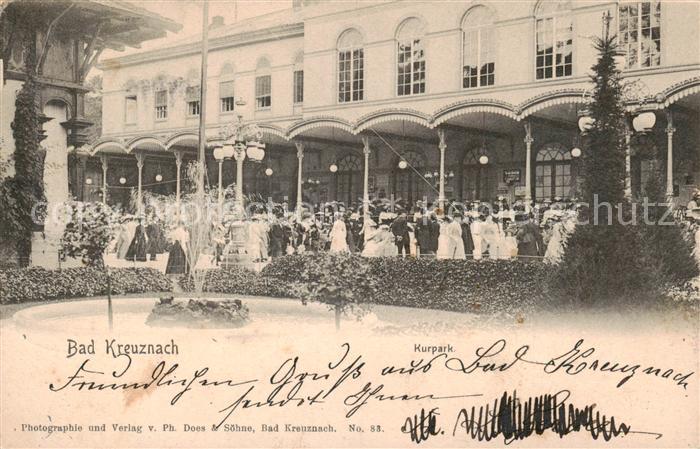 Bad Kreuznach
Kurpark.
Freundlichen Gruß aus Bad Kreuznach
sendet Ihnen
Photographie und Verlag v. Ph. Does & Söhne, Bad Kreuznach. No. 83.